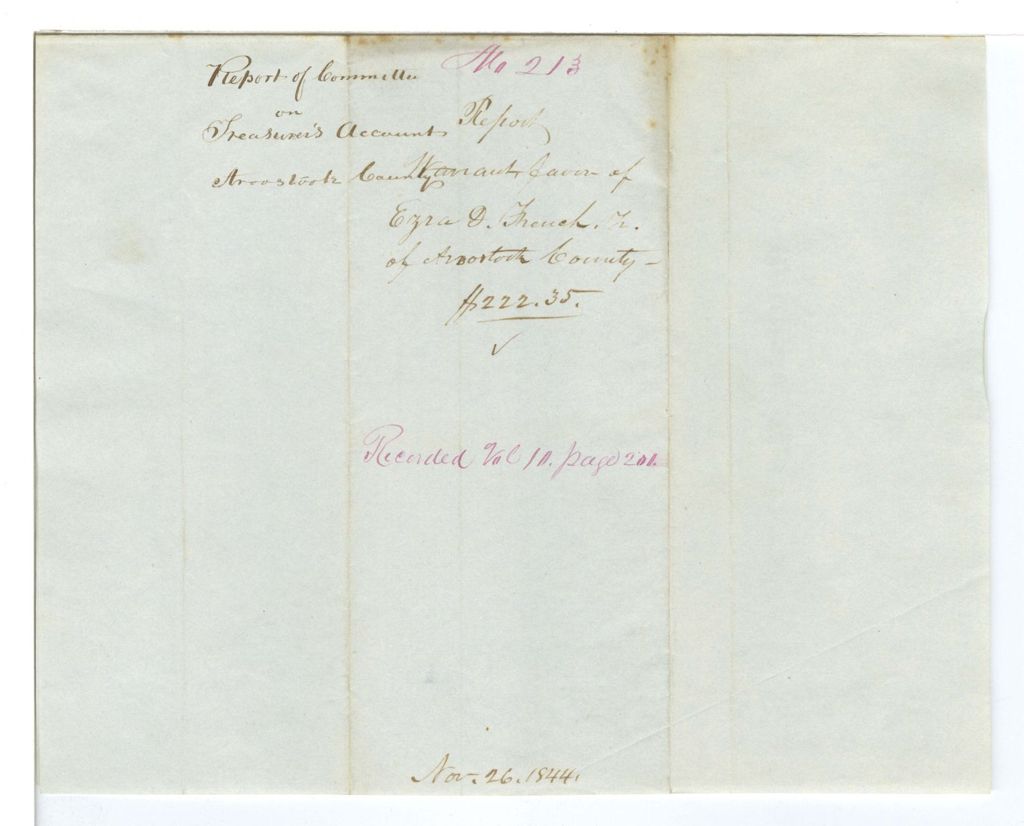 Report of Committee
on
Treasurer's Accounts
Aroostook County
No 213
Report
Warrant favor of
Ezra D. French. Tr.
of Aroostook County—
$222.35.
✓
Recorded Vol 10. page 201.
Nov. 26. 1844.